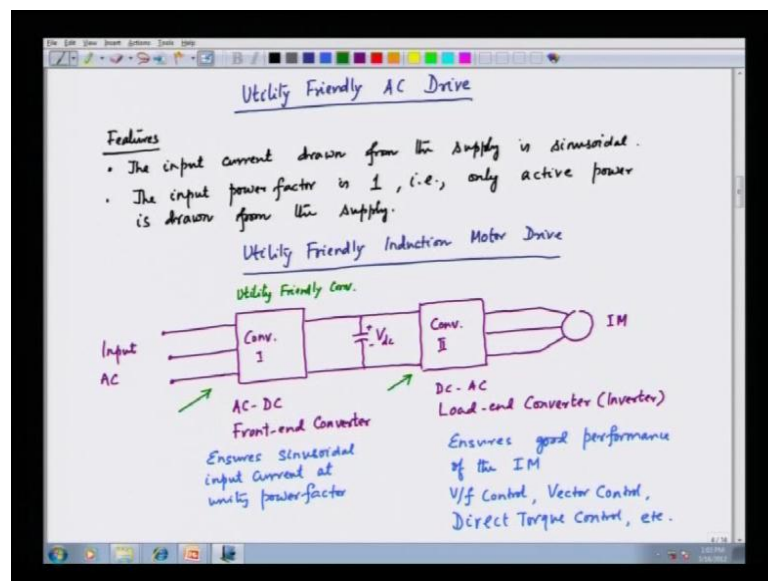 File Edit View Insert Actions Tools Help
Utility Friendly AC Drive
Features
• The input current drawn from the supply is sinusoidal.
• The input power factor is 1, i.e., only active power
is drawn from the supply.
Utility Friendly Induction Motor Drive
Utility Friendly Conv.
Input
AC
Conv.
I
+
-
Vdc
Conv.
II
IM
AC-DC
Front-end Converter
Ensures sinusoidal
input current at
unity power factor
DC-AC
Load-end Converter (Inverter)
Ensures good performance
of the IM
V/f Control, Vector Control,
Direct Torque Control, etc.